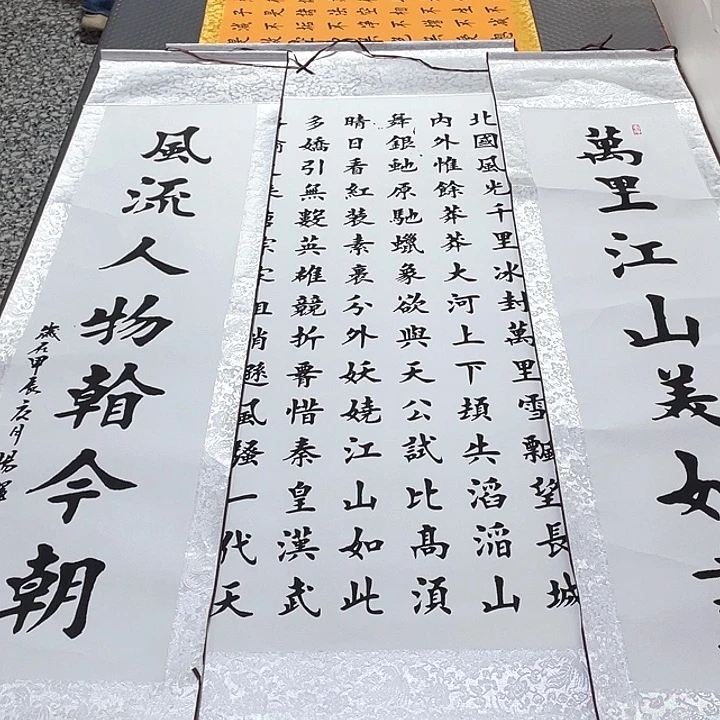 萬里江山美如
北國風光千里冰封萬里雪飄望長城
內外惟餘莽莽大河上下頓失滔滔山
舞銀虵原馳蠟象欲與天公試比高須
晴日看紅裝素裹分外妖嬈江山如此
多嬌引無數英雄競折腰惜秦皇漢武
唐宗宋祖稍遜風騷一代天
風流人物看今朝
歲在甲辰